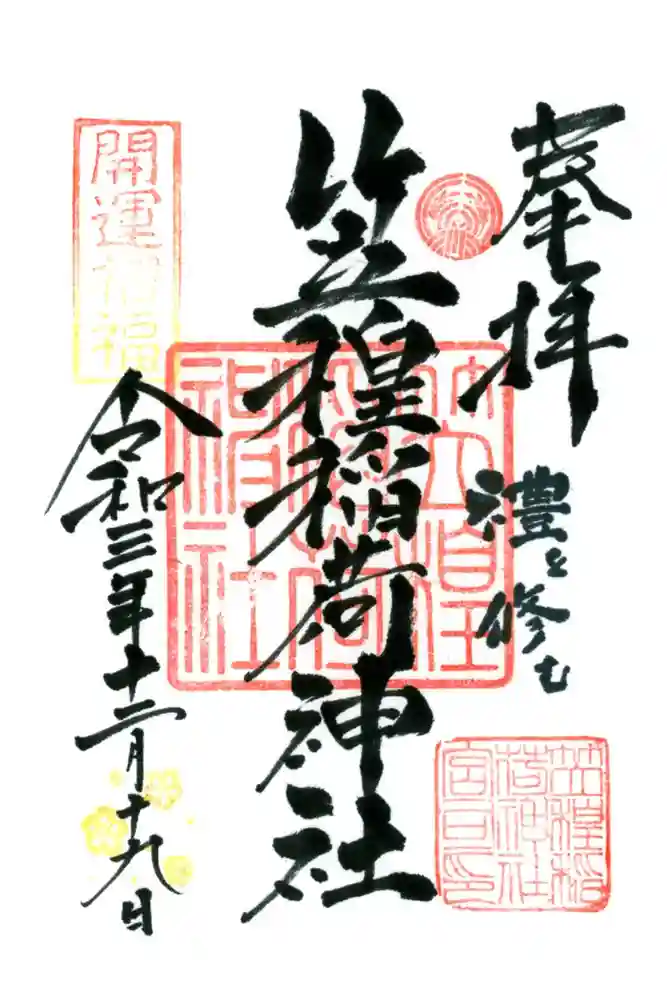 奉拝
禮を修む
笠䅣稲荷神社
開運招福
令和三年十二月十九日
笠䅣
稲荷
神社
笠䅣稲
荷神社
宮司印